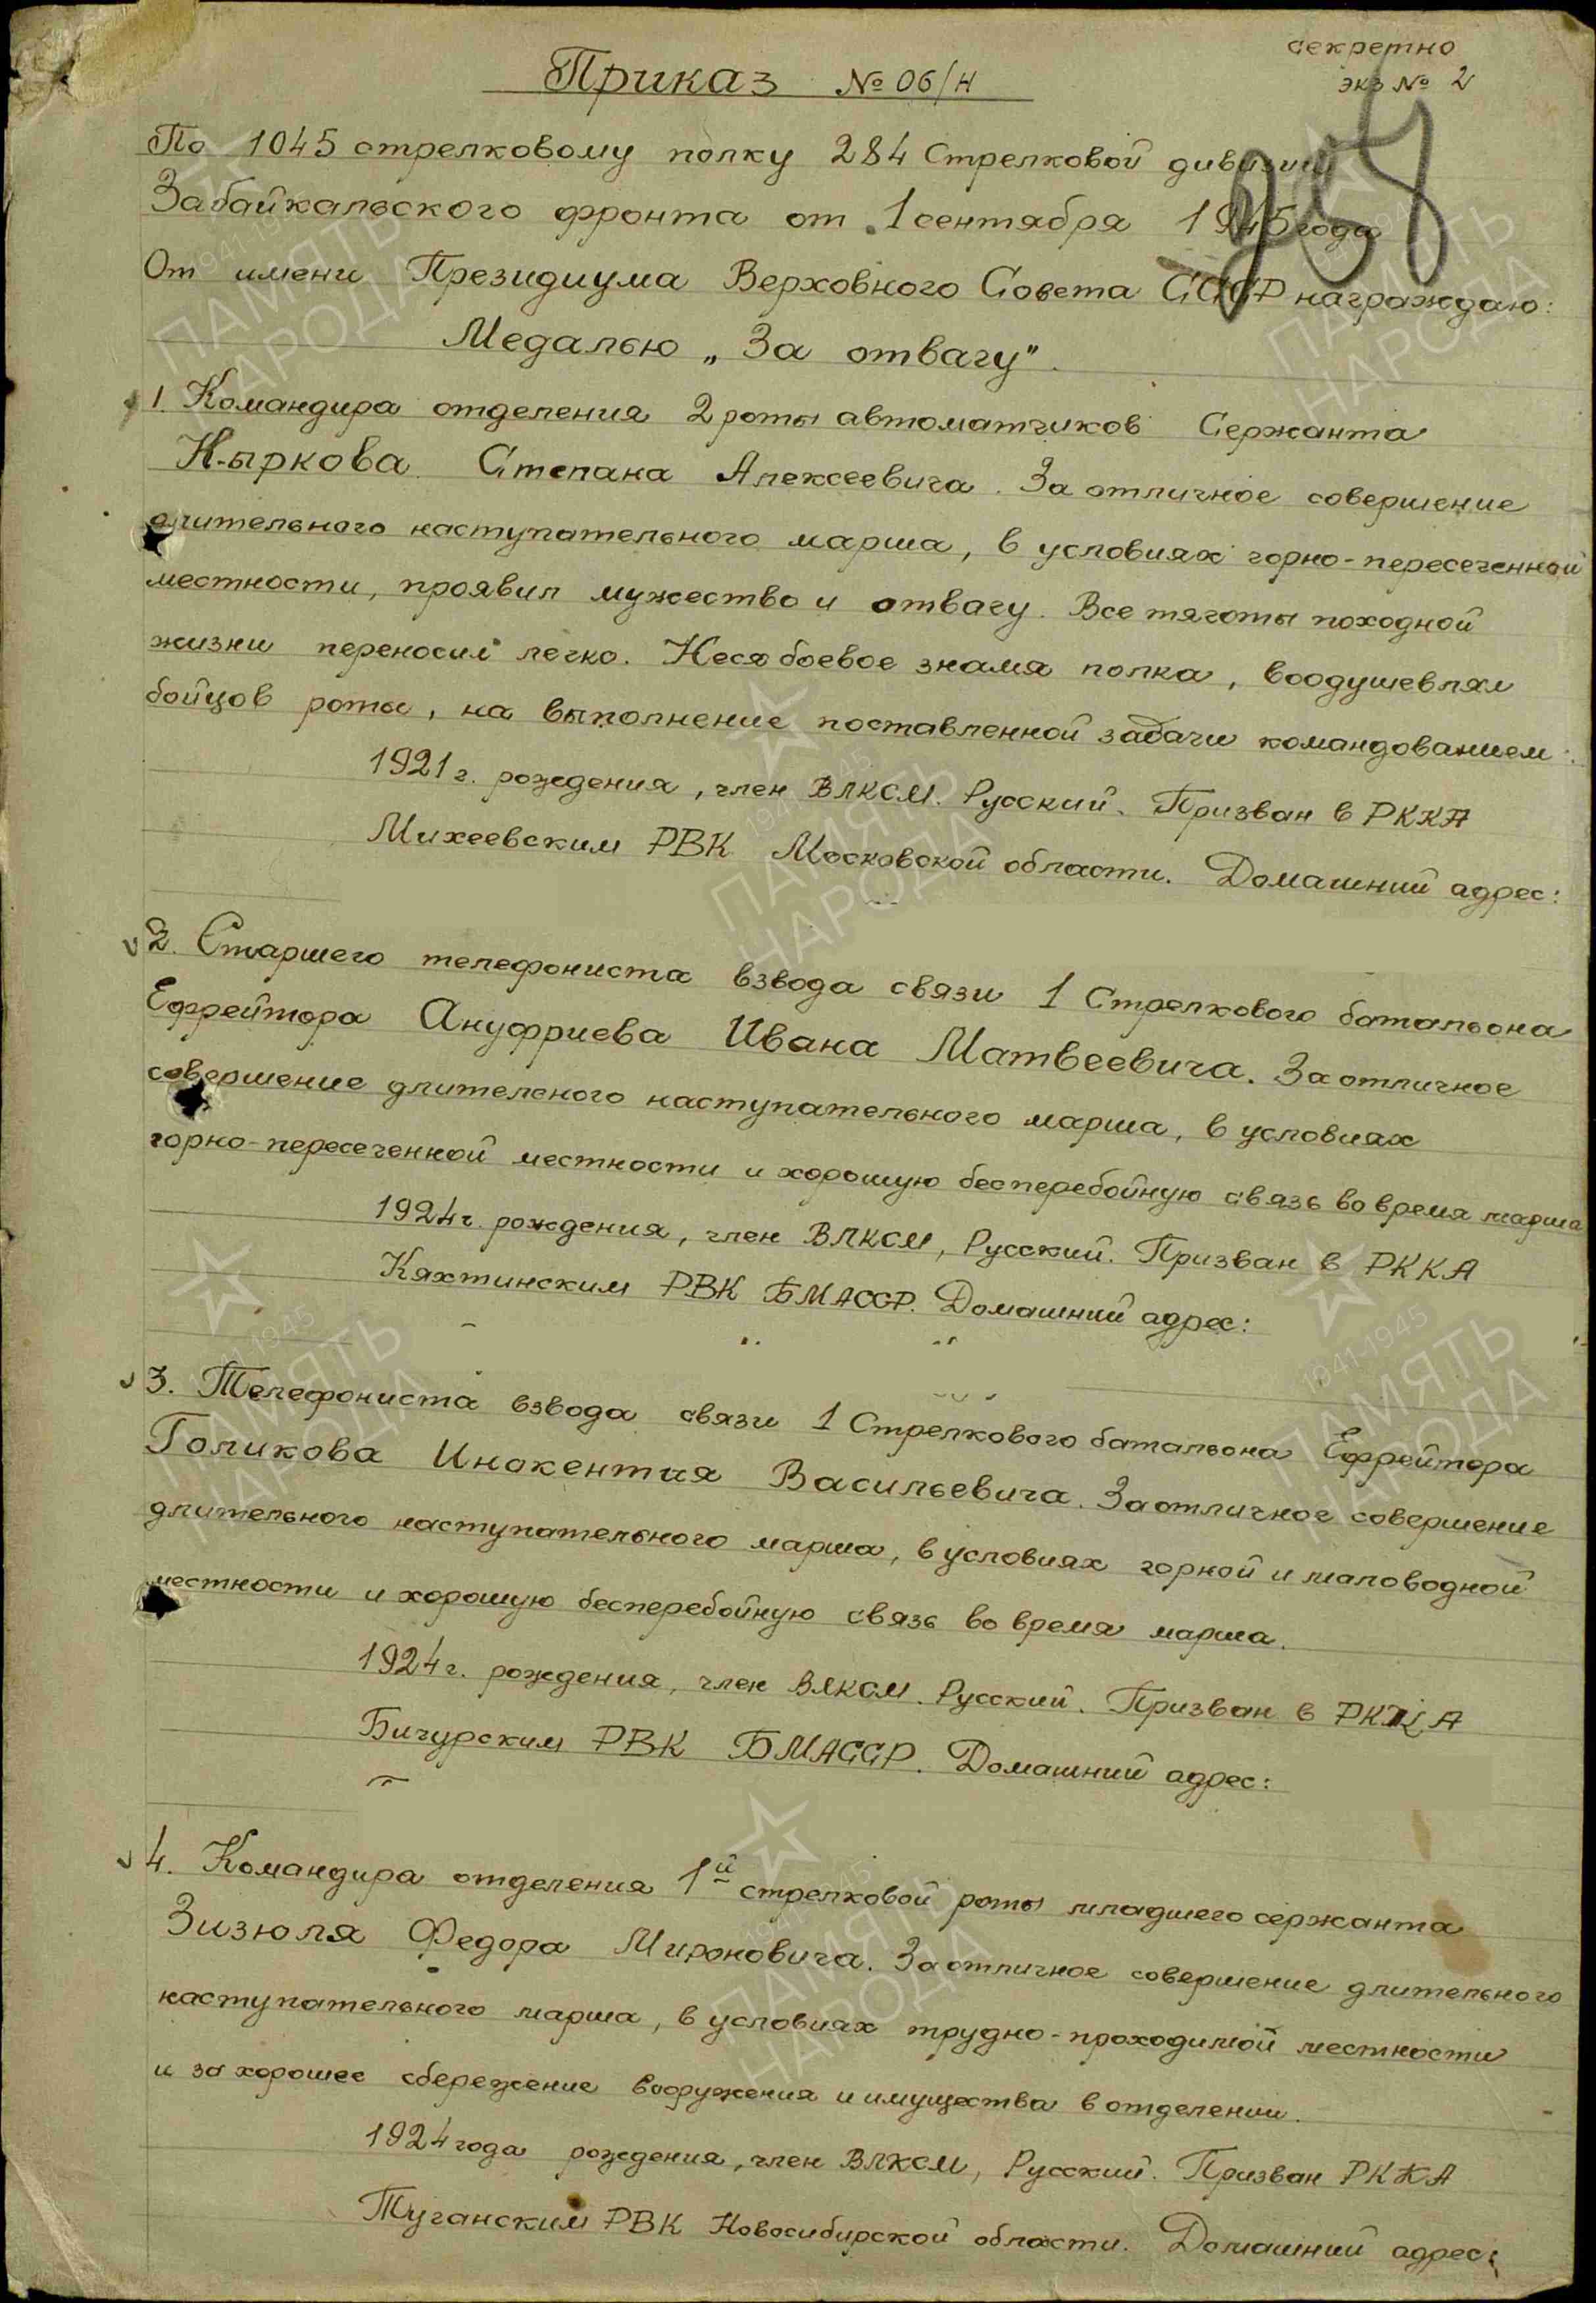 секретно
экз № 2
Приказ № 06/н
По 1045 стрелковому полку 284 Стрелковой дивизии
Забайкальского фронта от 1 сентября 1945 года
От имени Президиума Верховного Совета СССР награждаю:
Медалью „За отвагу".
1. Командира отделения 2 роты автоматчиков Сержанта
Ныркова Степана Алексеевича. За отличное совершение
длительного наступательного марша, в условиях горно-пересеченной
местности, проявил мужество и отвагу. Все тяготы походной
жизни переносил легко. Неся боевое знамя полка, воодушевлял
бойцов роты, на выполнение поставленной задачи командованием.
1921 г. рождения, член ВЛКСМ. Русский. Призван в РККА
Михеевским РВК Московской области. Домашний адрес:
2. Старшего телефониста взвода связи 1 Стрелкового батальона
Ефрейтора Ануфриева Ивана Матвеевича. За отличное
совершение длительного наступательного марша, в условиях
горно-пересеченной местности и хорошую бесперебойную связь во время марша
1924 г. рождения, член ВЛКСМ, Русский. Призван в РККА
Кяхтинским РВК БМАССР. Домашний адрес:
3. Телефониста взвода связи 1 Стрелкового батальона Ефрейтора
Голикова Инокентия Васильевича. За отличное совершение
длительного наступательного марша, в условиях горной и маловодной
местности и хорошую бесперебойную связь во время марша.
1924 г. рождения, член ВЛКСМ. Русский. Призван в РККА
Бичурским РВК БМАССР. Домашний адрес:
4. Командира отделения 1й стрелковой роты младшего сержанта
Зизюля Федора Мироновича. За отличное совершение длительного
наступательного марша, в условиях трудно-проходимой местности
и за хорошее сбережение вооружения и имущества в отделении.
1924 года рождения, член ВЛКСМ, Русский. Призван РККА
Туганским РВК Новосибирской области. Домашний адрес:
1941-1945
ПАМЯТЬ
НАРОДА